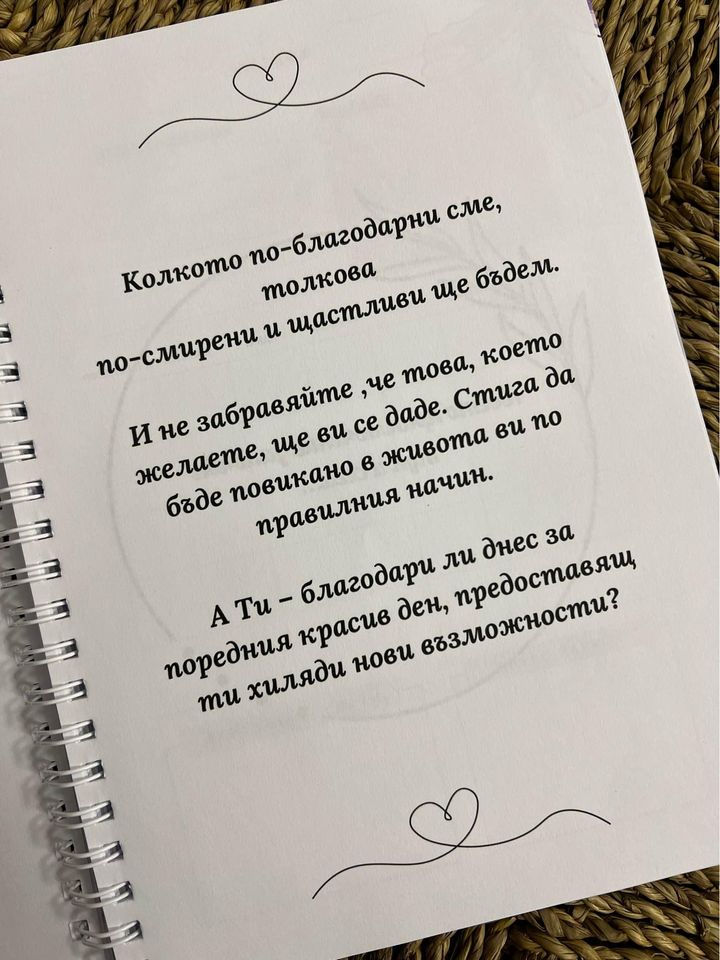 Колкото по-благодарни сме,
толкова
по-смирени и щастливи ще бъдем.
И не забравяйте ,че това, което
желаете, ще ви се даде. Стига да
бъде повикано в живота ви по
правилния начин.
А Ти – благодари ли днес за
поредния красив ден, предоставящ
ти хиляди нови възможности?